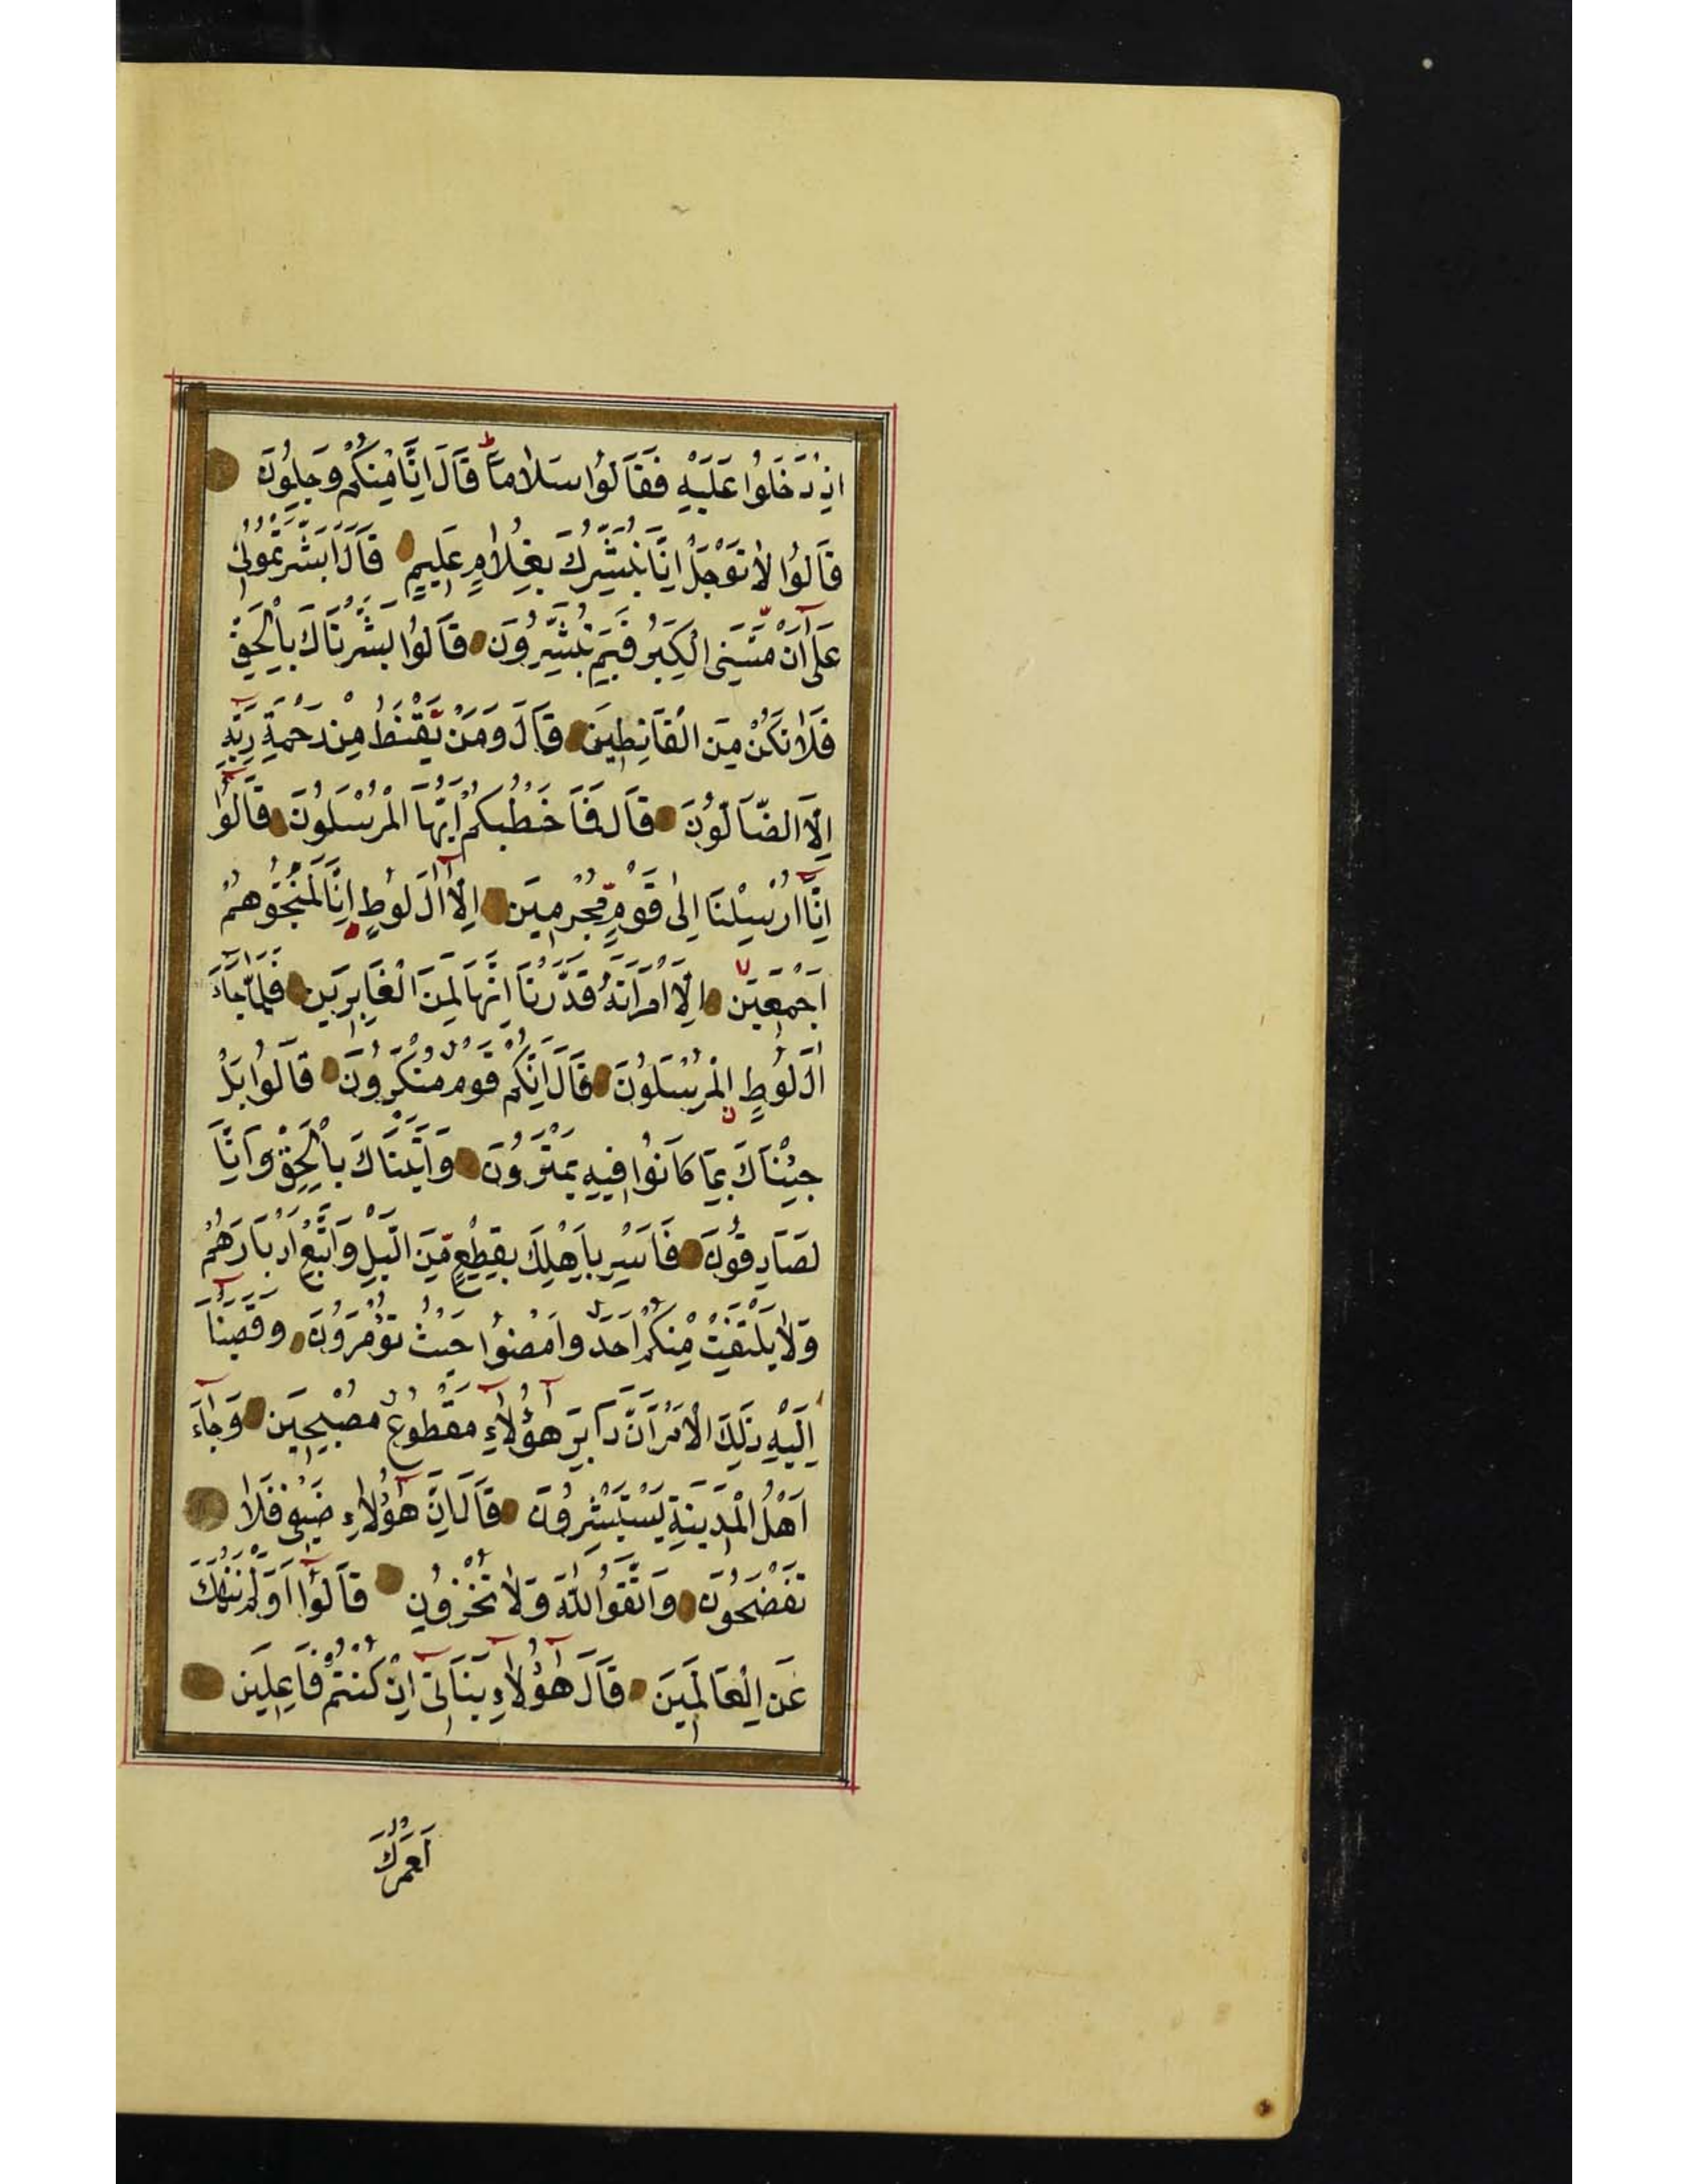 اِذْ دَخَلُوا عَلَيْهِ فَقَالُوا سَلَامًا قَالَ اِنَّا مِنْكُمْ وَجِلُونَ
قَالُوا لَا تَوْجَلْ اِنَّا نُبَشِّرُكَ بِغُلَامٍ عَلِيمٍ قَالَ اَبَشَّرْتُمُونِى
عَلٰى اَنْ مَسَّنِىَ الْكِبَرُ فَبِمَ تُبَشِّرُونَ قَالُوا بَشَّرْنَاكَ بِالْحَقِّ
فَلَا تَكُنْ مِنَ الْقَانِطِينَ قَالَ وَمَنْ يَقْنَطُ مِنْ رَحْمَةِ رَبِّهِ
اِلَّا الضَّالُّونَ قَالَ فَمَا خَطْبُكُمْ اَيُّهَا الْمُرْسَلُونَ قَالُوا
اِنَّا اُرْسِلْنَا اِلٰى قَوْمٍ مُجْرِمِينَ اِلَّا اٰلَ لُوطٍ اِنَّا لَمُنَجُّوهُمْ
اَجْمَعِينَ اِلَّا امْرَاَتَهُ قَدَّرْنَا اِنَّهَا لَمِنَ الْغَابِرِينَ فَلَمَّا جَاءَ
اٰلَ لُوطٍ الْمُرْسَلُونَ قَالَ اِنَّكُمْ قَوْمٌ مُنْكَرُونَ قَالُوا بَلْ
جِئْنَاكَ بِمَا كَانُوا فِيهِ يَمْتَرُونَ وَاَتَيْنَاكَ بِالْحَقِّ وَاِنَّا
لَصَادِقُونَ فَاَسْرِ بِاَهْلِكَ بِقِطْعٍ مِنَ الَّيْلِ وَاتَّبِعْ اَدْبَارَهُمْ
وَلَا يَلْتَفِتْ مِنْكُمْ اَحَدٌ وَامْضُوا حَيْثُ تُؤْمَرُونَ وَقَضَيْنَا
اِلَيْهِ ذٰلِكَ الْاَمْرَ اَنَّ دَابِرَ هٰؤُلَاءِ مَقْطُوعٌ مُصْبِحِينَ وَجَاءَ
اَهْلُ الْمَدِينَةِ يَسْتَبْشِرُونَ قَالَ اِنَّ هٰؤُلَاءِ ضَيْفِى فَلَا
تَفْضَحُونِ وَاتَّقُوا اللّٰهَ وَلَا تُخْزُونِ قَالُوا اَوَلَمْ نَنْهَكَ
عَنِ الْعَالَمِينَ قَالَ هٰؤُلَاءِ بَنَاتِى اِنْ كُنْتُمْ فَاعِلِينَ
لَعَمْرُكَ